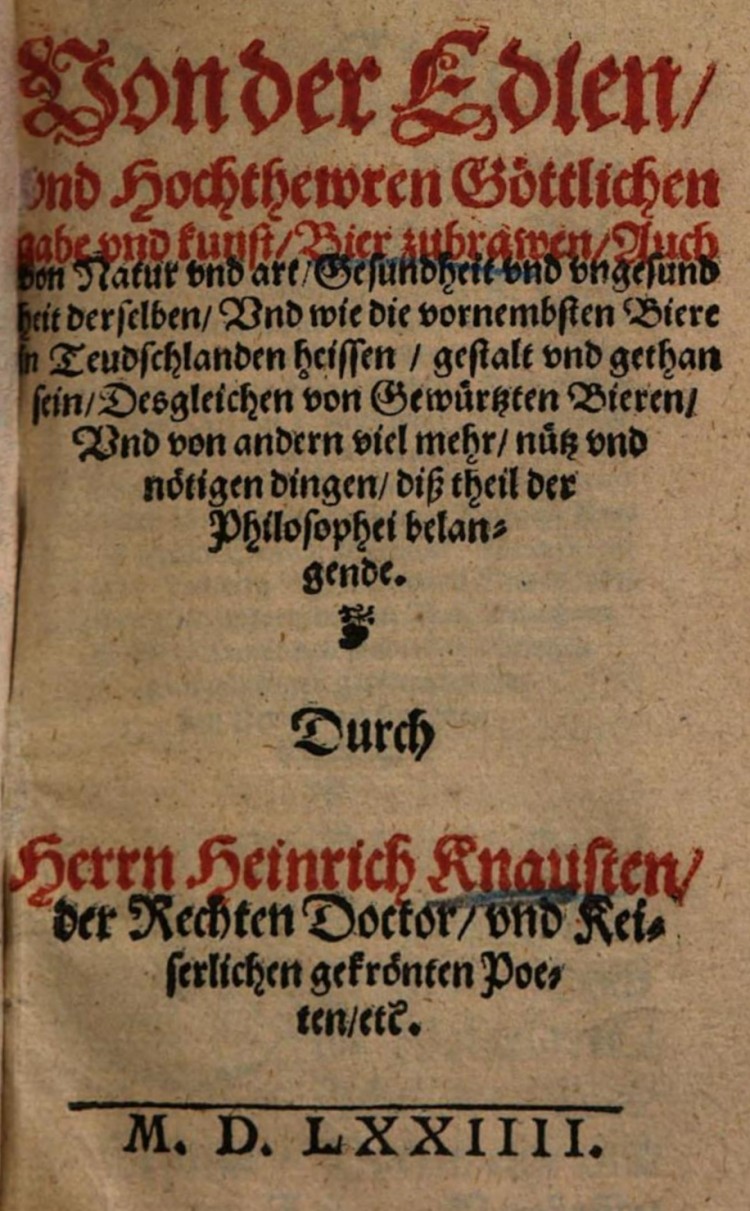 Von der Edlen/
vnd Hochthewren Göttlichen
gabe vnd kunst/ Bier zubrawen/ Auch
von Natur vnd art/ Gesundheit vnd vngesund
heit derselben/ Vnd wie die vornembsten Biere
in Teudschlanden heissen / gestalt vnd gethan
sein/ Desgleichen von Gewürtzten Bieren/
Vnd von andern viel mehr/ nütz vnd
nötigen dingen/ diß theil der
Philosophei belan⸗
gende.
Durch
Herrn Heinrich Knausten/
der Rechten Doctor/ vnd Kei⸗
serlichen gekrönten Poe⸗
ten/ etc.
M. D. LXXIIII.